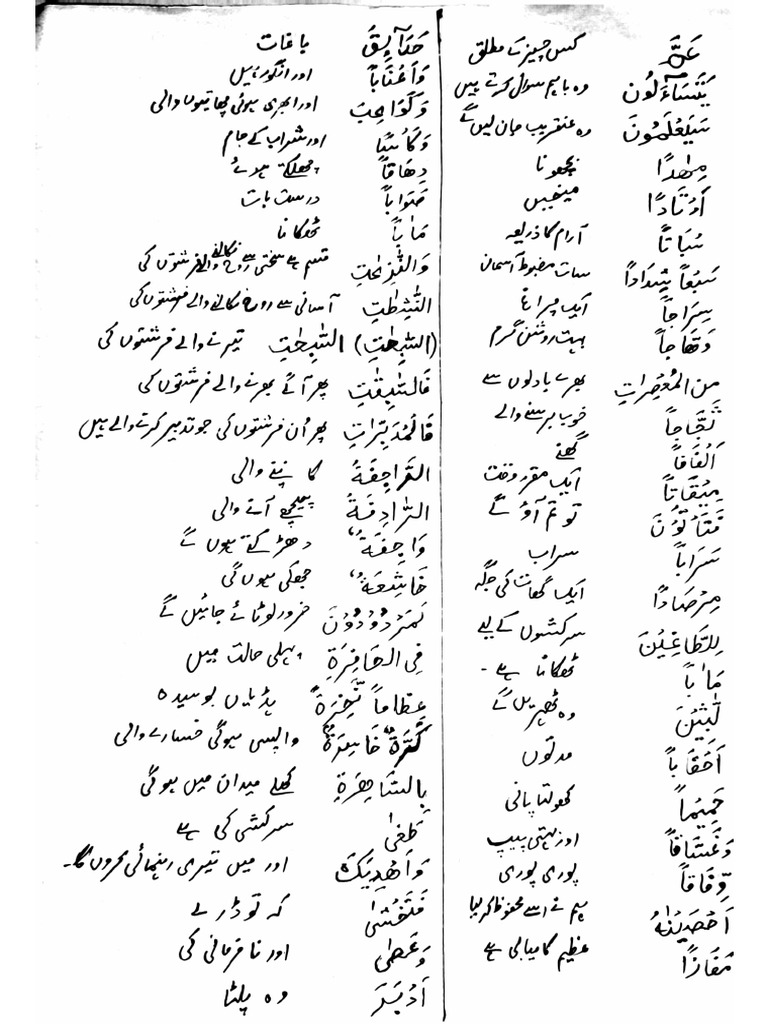 عَمَّ کس چیز کے مطلق
يَتَسَاءَلُونَ وہ باہم سوال کرتے ہیں
سَيَعْلَمُونَ وہ عنقریب جان لیں گے
مِهٰدًا بچھونا
أَوْتَادًا میخیں
سُبَاتًا آرام کا ذریعہ
سَبْعًا شِدَادًا سات مضبوط آسمان
سِرَاجًا ایک چراغ
وَهَّاجًا بہت روشن گرم
مِنَ المُعْصِرَاتِ بھرے بادلوں سے
ثَجَّاجًا خوب برسنے والے
أَلْفَافًا گھنے
مِيْقَاتًا ایک مقرر وقت
فَتَأْتُوْنَ تو تم آؤ گے
سَرَابًا سراب
مِرْصَادًا ایک گھات کی جگہ
لِلطَّاغِيْنَ سرکشوں کے لیے
مَاٰبًا ٹھکانا ہے۔
لّٰبِثِيْنَ وہ ٹھہریں گے
أَحْقَابًا مدتوں
حَمِيْمًا کھولتا پانی
وَغَسَّاقًا اور بہتی پیپ
وِّفَاقًا پوری پوری
أَحْصَيْنٰهُ ہم نے اسے محفوظ کر لیا
مَفَازًا عظیم کامیابی ہے
حَدَآئِقَ باغات
وَأَعْنَابًا اور انگور ہیں
وَكَوَاعِبَ اور ابھری ہوئی چھاتیوں والی
وَكَأْسًا اور شراب کے جام
دِهَاقًا چھلکتے ہوئے
صَوَابًا درست بات
مَاٰبًا ٹھکانا
وَالنّٰزِعٰتِ قسم ہے سختی سے روح نکالنے والے فرشتوں کی
النّٰشِطٰتِ آسانی سے روح نکالنے والے فرشتوں کی
(السّٰبِحٰتِ) السّٰبِحٰتِ تیرنے والے فرشتوں کی
فَالسّٰبِقٰتِ پھر آگے بھرنے والے فرشتوں کی
فَالْمُدَبِّرَاتِ پھر اُن فرشتوں کی جو تدبیر کرتے والے ہیں
الرَّاجِفَةُ کانپنے والی
الرَّادِفَةُ پیچھے آنے والی
وَاجِفَةٌ دھڑکتے ہوں گے
خَاشِعَةٌ جھکی ہوں گی
لَمَرْدُوْدُوْنَ ضرور لوٹائے جائیں گے
فِي الحَافِرَةِ پہلی حالت میں
عِظَامًا نَّخِرَةً ہڈیاں بوسیدہ
كَرَّةٌ خَاسِرَةٌ واپسی ہوگی خسارے والی
بِالسَّاهِرَةِ کھلے میدان میں ہوگی
طَغٰى سرکشی کی ہے
وَأَهْدِيَكَ اور میں تیری رہنمائی کروں گا۔
فَتَخْشٰى کہ تو ڈرے
وَعَصٰى اور نافرمانی کی
أَدْبَرَ وہ پلٹا